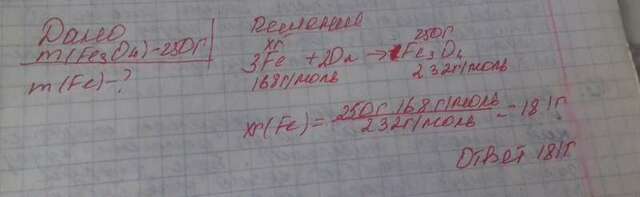 Дано
m(Fe3O4)-250г
m(Fe)-?
Решение
хг 250г
3Fe + 2O2 → Fe3O4
168г/моль 232г/моль
хг(Fe) = 250г 168г/моль / 232г/моль = 181г
Ответ 181г